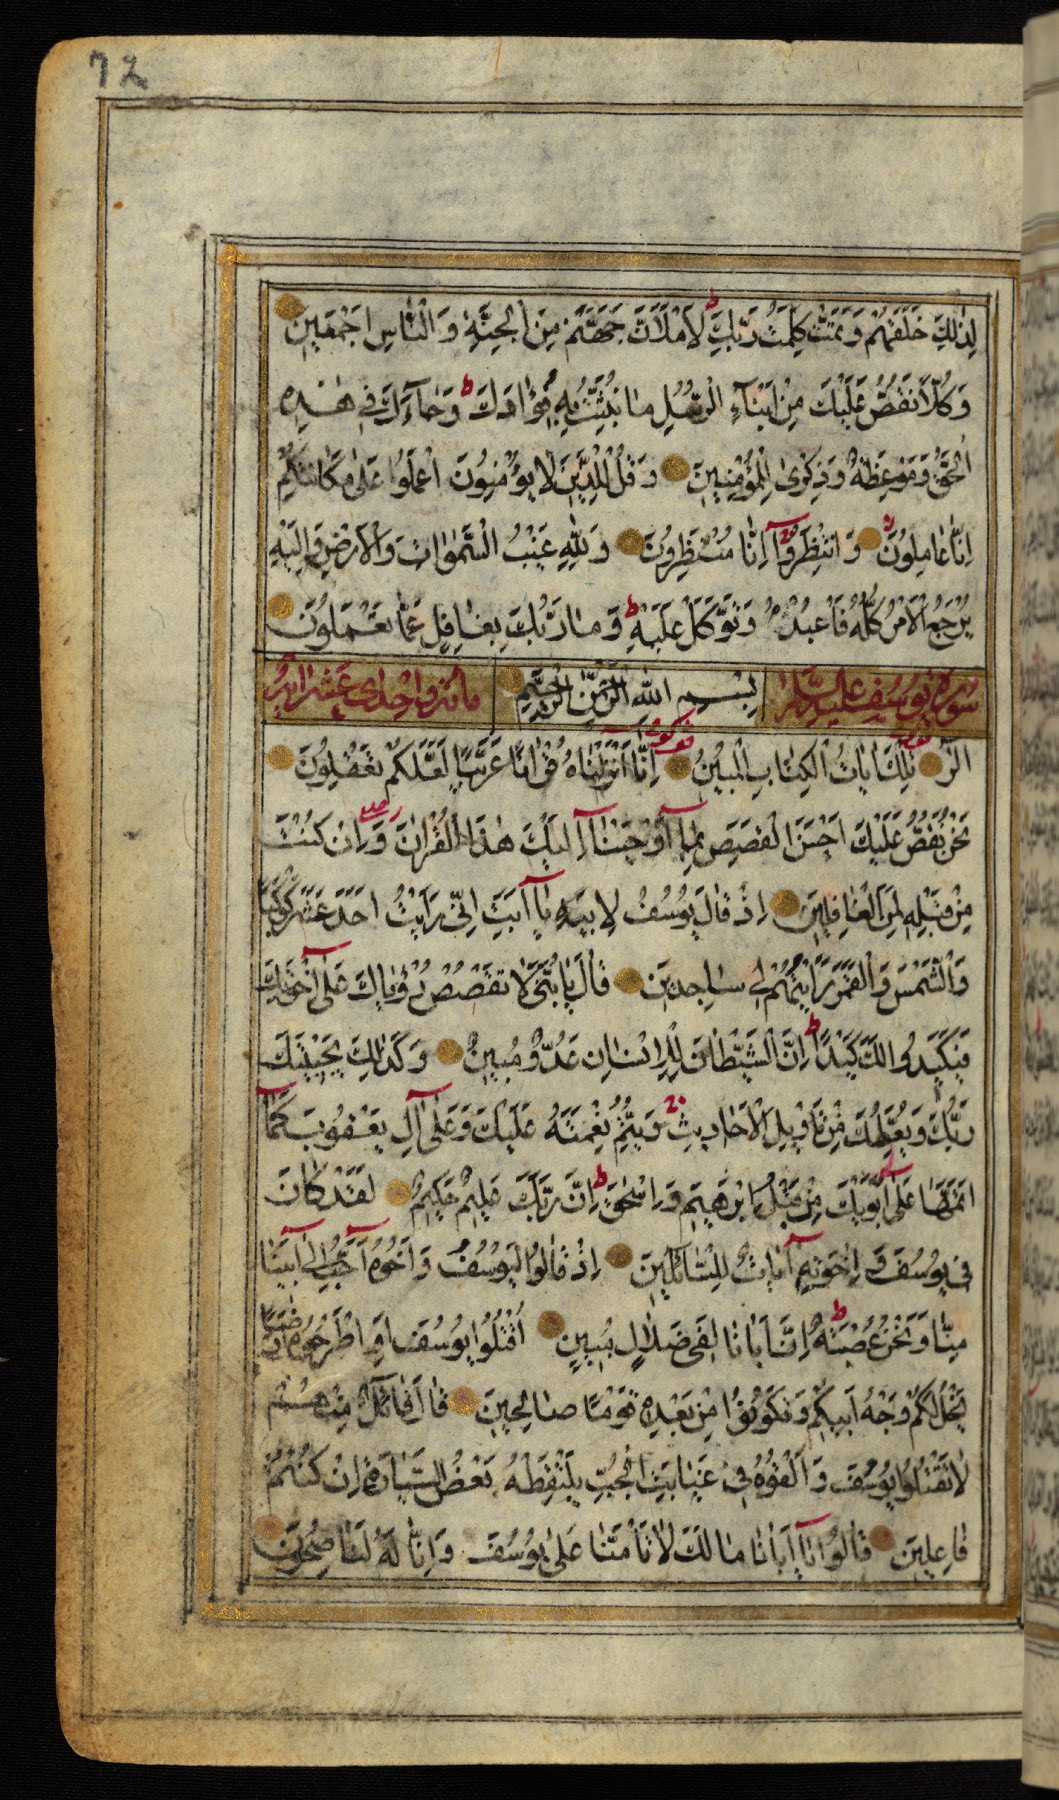 72
لِذٰلِكَ خَلَقَهُمْ وَتَمَّتْ كَلِمَتُ رَبِّكَ ط لَاَمْلَاَنَّ جَهَنَّمَ مِنَ الْجِنَّةِ وَالنَّاسِ اَجْمَعِينَ
وَكُلًّا نَقُصُّ عَلَيْكَ مِنْ اَنْبَآءِ الرُّسُلِ مَا نُثَبِّتُ بِهِ فُؤَادَكَ ط وَجَآءَكَ فِي هٰذِهِ
الْحَقُّ وَمَوْعِظَةٌ وَذِكْرٰى لِلْمُؤْمِنِينَ وَقُلْ لِلَّذِينَ لَا يُؤْمِنُونَ اعْمَلُوا عَلٰى مَكَانَتِكُمْ
اِنَّا عَامِلُونَ وَانْتَظِرُوا اِنَّا مُنْتَظِرُونَ وَلِلّٰهِ غَيْبُ السَّمٰوَاتِ وَالْاَرْضِ وَاِلَيْهِ
يُرْجَعُ الْاَمْرُ كُلُّهُ فَاعْبُدْهُ وَتَوَكَّلْ عَلَيْهِ ط وَمَا رَبُّكَ بِغَافِلٍ عَمَّا تَعْمَلُونَ
سورة يوسف عليه السلام بِسْمِ اللّٰهِ الرَّحْمٰنِ الرَّحِيمِ مائة واحدى عشر اية
الٓرٰ تِلْكَ اٰيَاتُ الْكِتَابِ الْمُبِينِ اِنَّا اَنْزَلْنَاهُ قُرْاٰنًا عَرَبِيًّا لَعَلَّكُمْ تَعْقِلُونَ
نَحْنُ نَقُصُّ عَلَيْكَ اَحْسَنَ الْقَصَصِ بِمَا اَوْحَيْنَا اِلَيْكَ هٰذَا الْقُرْاٰنَ وَاِنْ كُنْتَ
مِنْ قَبْلِهِ لَمِنَ الْغَافِلِينَ اِذْ قَالَ يُوسُفُ لِاَبِيهِ يَا اَبَتِ اِنِّي رَاَيْتُ اَحَدَ عَشَرَ كَوْكَبًا
وَالشَّمْسَ وَالْقَمَرَ رَاَيْتُهُمْ لِي سَاجِدِينَ قَالَ يَا بُنَيَّ لَا تَقْصُصْ رُؤْيَاكَ عَلٰى اِخْوَتِكَ
فَيَكِيدُوا لَكَ كَيْدًا ط اِنَّ الشَّيْطَانَ لِلْاِنْسَانِ عَدُوٌّ مُبِينٌ وَكَذٰلِكَ يَجْتَبِيكَ
رَبُّكَ وَيُعَلِّمُكَ مِنْ تَاْوِيلِ الْاَحَادِيثِ وَيُتِمُّ نِعْمَتَهُ عَلَيْكَ وَعَلٰى اٰلِ يَعْقُوبَ كَمَا
اَتَمَّهَا عَلٰى اَبَوَيْكَ مِنْ قَبْلُ اِبْرٰهِيمَ وَاِسْحٰقَ ط اِنَّ رَبَّكَ عَلِيمٌ حَكِيمٌ لَقَدْ كَانَ
فِي يُوسُفَ وَاِخْوَتِهِ اٰيَاتٌ لِلسَّائِلِينَ اِذْ قَالُوا لَيُوسُفُ وَاَخُوهُ اَحَبُّ اِلٰى اَبِينَا
مِنَّا وَنَحْنُ عُصْبَةٌ ط اِنَّ اَبَانَا لَفِي ضَلَالٍ مُبِينٍ اُقْتُلُوا يُوسُفَ اَوِ اطْرَحُوهُ اَرْضًا
يَخْلُ لَكُمْ وَجْهُ اَبِيكُمْ وَتَكُونُوا مِنْ بَعْدِهِ قَوْمًا صَالِحِينَ قَالَ قَائِلٌ مِنْهُمْ
لَا تَقْتُلُوا يُوسُفَ وَاَلْقُوهُ فِي غَيَابَتِ الْجُبِّ يَلْتَقِطْهُ بَعْضُ السَّيَّارَةِ اِنْ كُنْتُمْ
فَاعِلِينَ قَالُوا يَا اَبَانَا مَا لَكَ لَا تَاْمَنَّا عَلٰى يُوسُفَ وَاِنَّا لَهُ لَنَاصِحُونَ